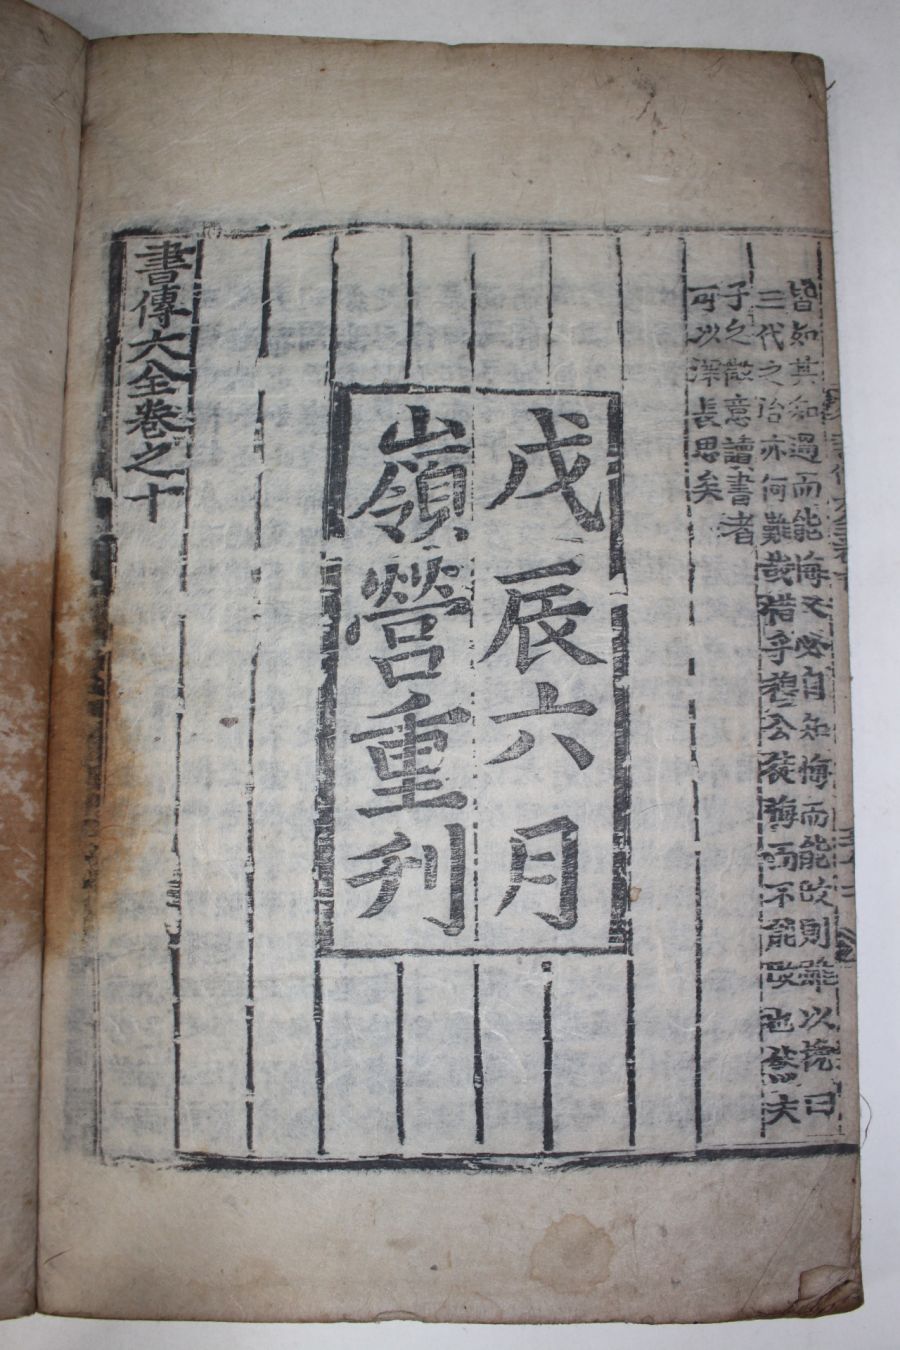 皆如其知過而能悔又必自知悔而能改則雖以挽回
三代之治亦何難哉惜乎穆公徒悔而不能改也然夫
子之微意讀書者
可以深長思矣
戊辰六月
嶺營重刊
書傳大全卷之十